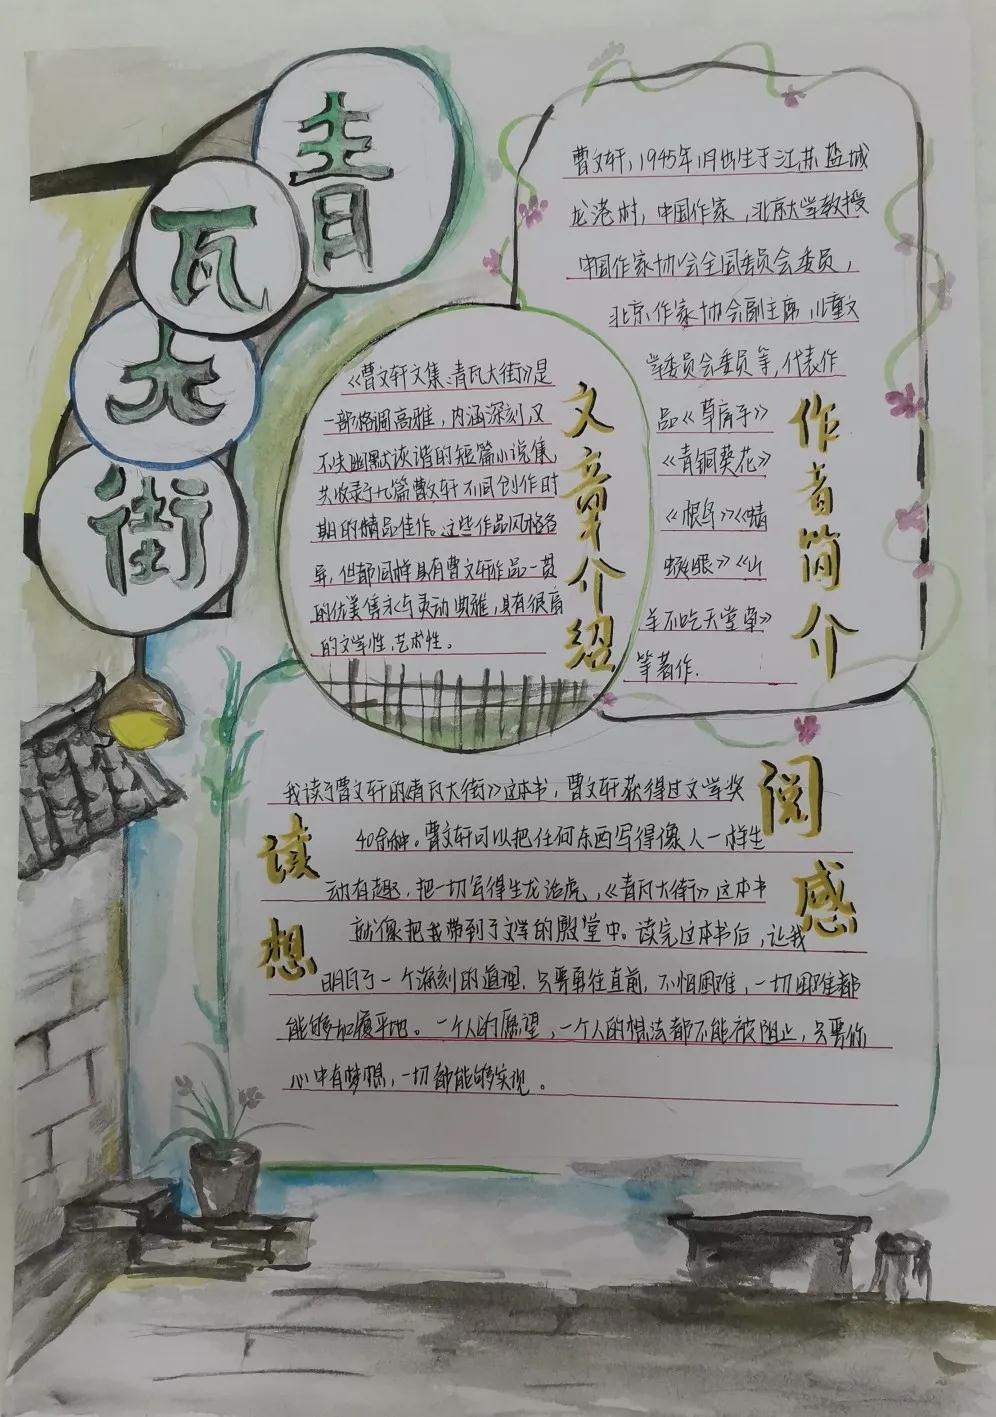 青瓦大街
曹文轩，1945年1月出生于江苏盐城
龙港村，中国作家，北京大学教授
中国作家协会全国委员会委员，
北京作家协会副主席，儿童文
学委员会委员等，代表作
品《草房子》
《青铜葵花》
《根鸟》《蜻
蜓眼》《山
羊不吃天堂草》
等著作.
作者简介
《曹文轩文集：青瓦大街》是
一部格调高雅，内涵深刻，又
不失幽默诙谐的短篇小说集
共收录了十九篇曹文轩不同创作时
期的精品佳作。这些作品风格各
异，但都同样具有曹文轩作品一贯
的优美隽永与灵动典雅，具有很高
的文学性、艺术性。
文章介绍
我读了曹文轩的《青瓦大街》这本书，曹文轩获得过文学奖
40余种。曹文轩可以把任何东西写得像人一样生
动有趣，把一切写得生龙活虎，《青瓦大街》这本书
就像把我带到了文学的殿堂中。读完这本书后，让我
明白了一个深刻的道理，只要勇往直前，不怕困难，一切困难都
能够如履平地。一个人的愿望，一个人的想法都不能被阻止，只要你
心中有梦想，一切都能够实现。
阅
读
感
想